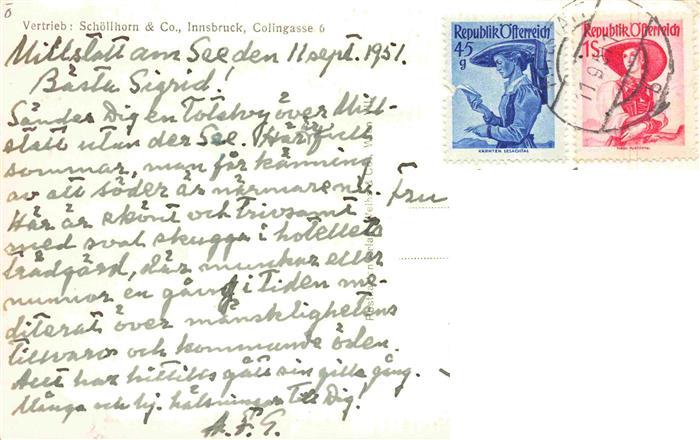 Vertrieb: Schöllhorn & Co., Innsbruck, Colingasse 6
Millstatt am See den 11 sept. 1951.
Bästa Sigrid!
Sänder Dig en över Mill-
statt utan der See. Här full
sommar, man får känning
av att söder är närmare
Här är skönt och trivsamt
med sval skugga i hotellets
trädgård, där munkar eller
nunnor en gång i tiden me-
diterat över mänsklighetens
tillvaro och kommande öden.
Allt har hittills gått sin gilla gång.
Många och hj. hälsningar till Dig!
Fru
Republik Österreich
45
g
KÄRNTEN LESACHTAL
Republik Österreich
1S
11.9.5